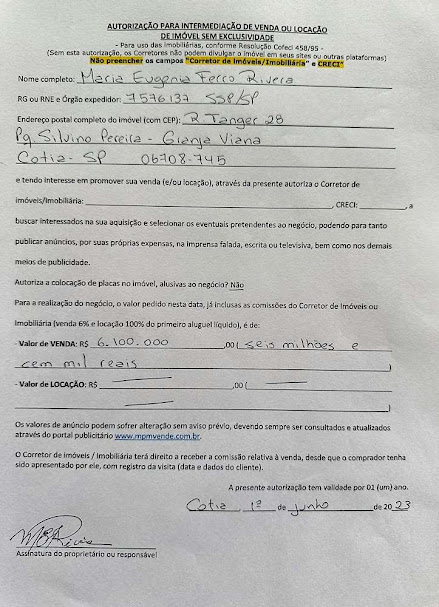 AUTORIZAÇÃO PARA INTERMEDIAÇÃO DE VENDA OU LOCAÇÃO
DE IMÓVEL SEM EXCLUSIVIDADE
- Para uso das Imobiliárias, conforme Resolução Cofeci 458/95 -
(Sem esta autorização, os Corretores não podem divulgar o imóvel em seus sites ou outras plataformas)
Não preencher os campos "Corretor de Imóveis/Imobiliária" e CRECI"
Nome completo: Maria Eugenia Ferro Rivera
RG ou RNE e Órgão expedidor: 7576137 SSP/SP
Endereço postal completo do imóvel (com CEP): R. Tanger 28
Pq Silvino Pereira - Granja Viana
Cotia - SP 06708-745
e tendo interesse em promover sua venda (e/ou locação), através da presente autoriza o Corretor de
imóveis/Imobiliária: , CRECI: , a
buscar interessados na sua aquisição e selecionar os eventuais pretendentes ao negócio, podendo para tanto
publicar anúncios, por suas próprias expensas, na imprensa falada, escrita ou televisiva, bem como nos demais
meios de publicidade.
Autoriza a colocação de placas no imóvel, alusivas ao negócio? Não
Para a realização do negócio, o valor pedido nesta data, já inclusas as comissões do Corretor de Imóveis ou
Imobiliária (venda 6% e locação 100% do primeiro aluguel líquido), é de:
- Valor de VENDA: R$ 6.100.000 ,00 ( seis milhões e
cem mil reais )
- Valor de LOCAÇÃO: R$ ,00 (
)
Os valores de anúncio podem sofrer alteração sem aviso prévio, devendo sempre ser consultados e atualizados
através do portal publicitário www.mpmvende.com.br.
O Corretor de Imóveis / Imobiliária terá direito a receber a comissão relativa à venda, desde que o comprador tenha
sido apresentado por ele, com registro da visita (data e dados do cliente).
A presente autorização tem validade por 01 (um) ano.
Cotia, 1º de junho de 20 23
Assinatura do proprietário ou responsável